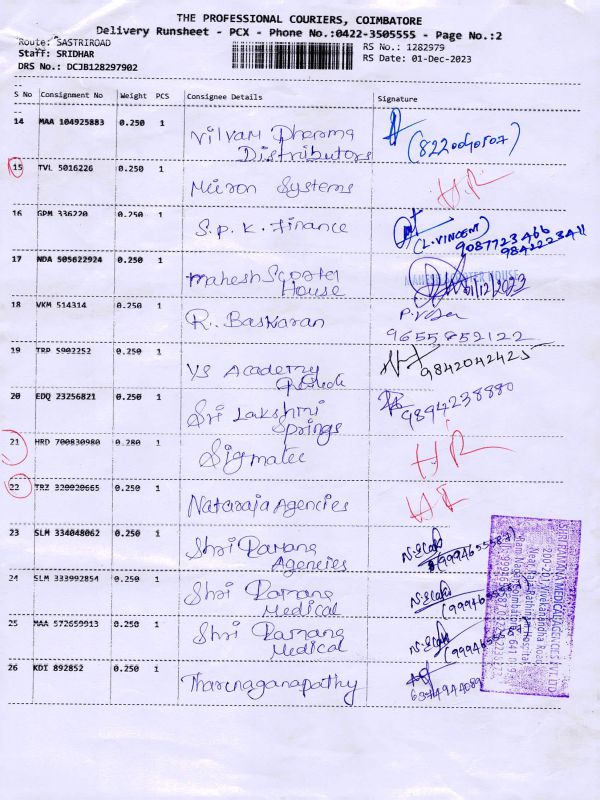 THE PROFESSIONAL COURIERS, COIMBATORE
Delivery Runsheet - PCX - Phone No.:0422-3505555 - Page No.:2
Route: SASTRIROAD
RS No.: 1282979
Staff: SRIDHAR
RS Date: 01-Dec-2023
DRS No.: DCJB128297902
S No Consignment No Weight PCS Consignee Details Signature
14 MAA 104925883 0.250 1 Vilvam Pharma
Distributors (8220040507)
15 TVL 5016226 0.250 1 Micron Systems H.R
16 GPM 336220 0.250 1 S.P.K. Finance
(L.VINCENT) 9087723466
9842223411
17 NDA 505622924 0.250 1 Mahesh Scooter
House 01/12/2023
18 VKM 514314 0.250 1 R. Baskaran
9655852122
19 TRP 5902252 0.250 1 VS Academy
9842042425
20 EDQ 23256821 0.250 1 Sri Lakshmi
Springs 9894238880
21 HRD 700830980 0.280 1 Sigmatec H R
22 TRZ 320020665 0.250 1 Nataraja Agencies H R
23 SLM 334048062 0.250 1 Shri Ramana
Agencies (9994655587)
24 SLM 333992854 0.250 1 Shri Ramana
Medical (9994655587)
25 MAA 572659913 0.250 1 Shri Ramana
Medical (9994655587)
26 KDI 892852 0.250 1 Tharenaganapathy
6374944089